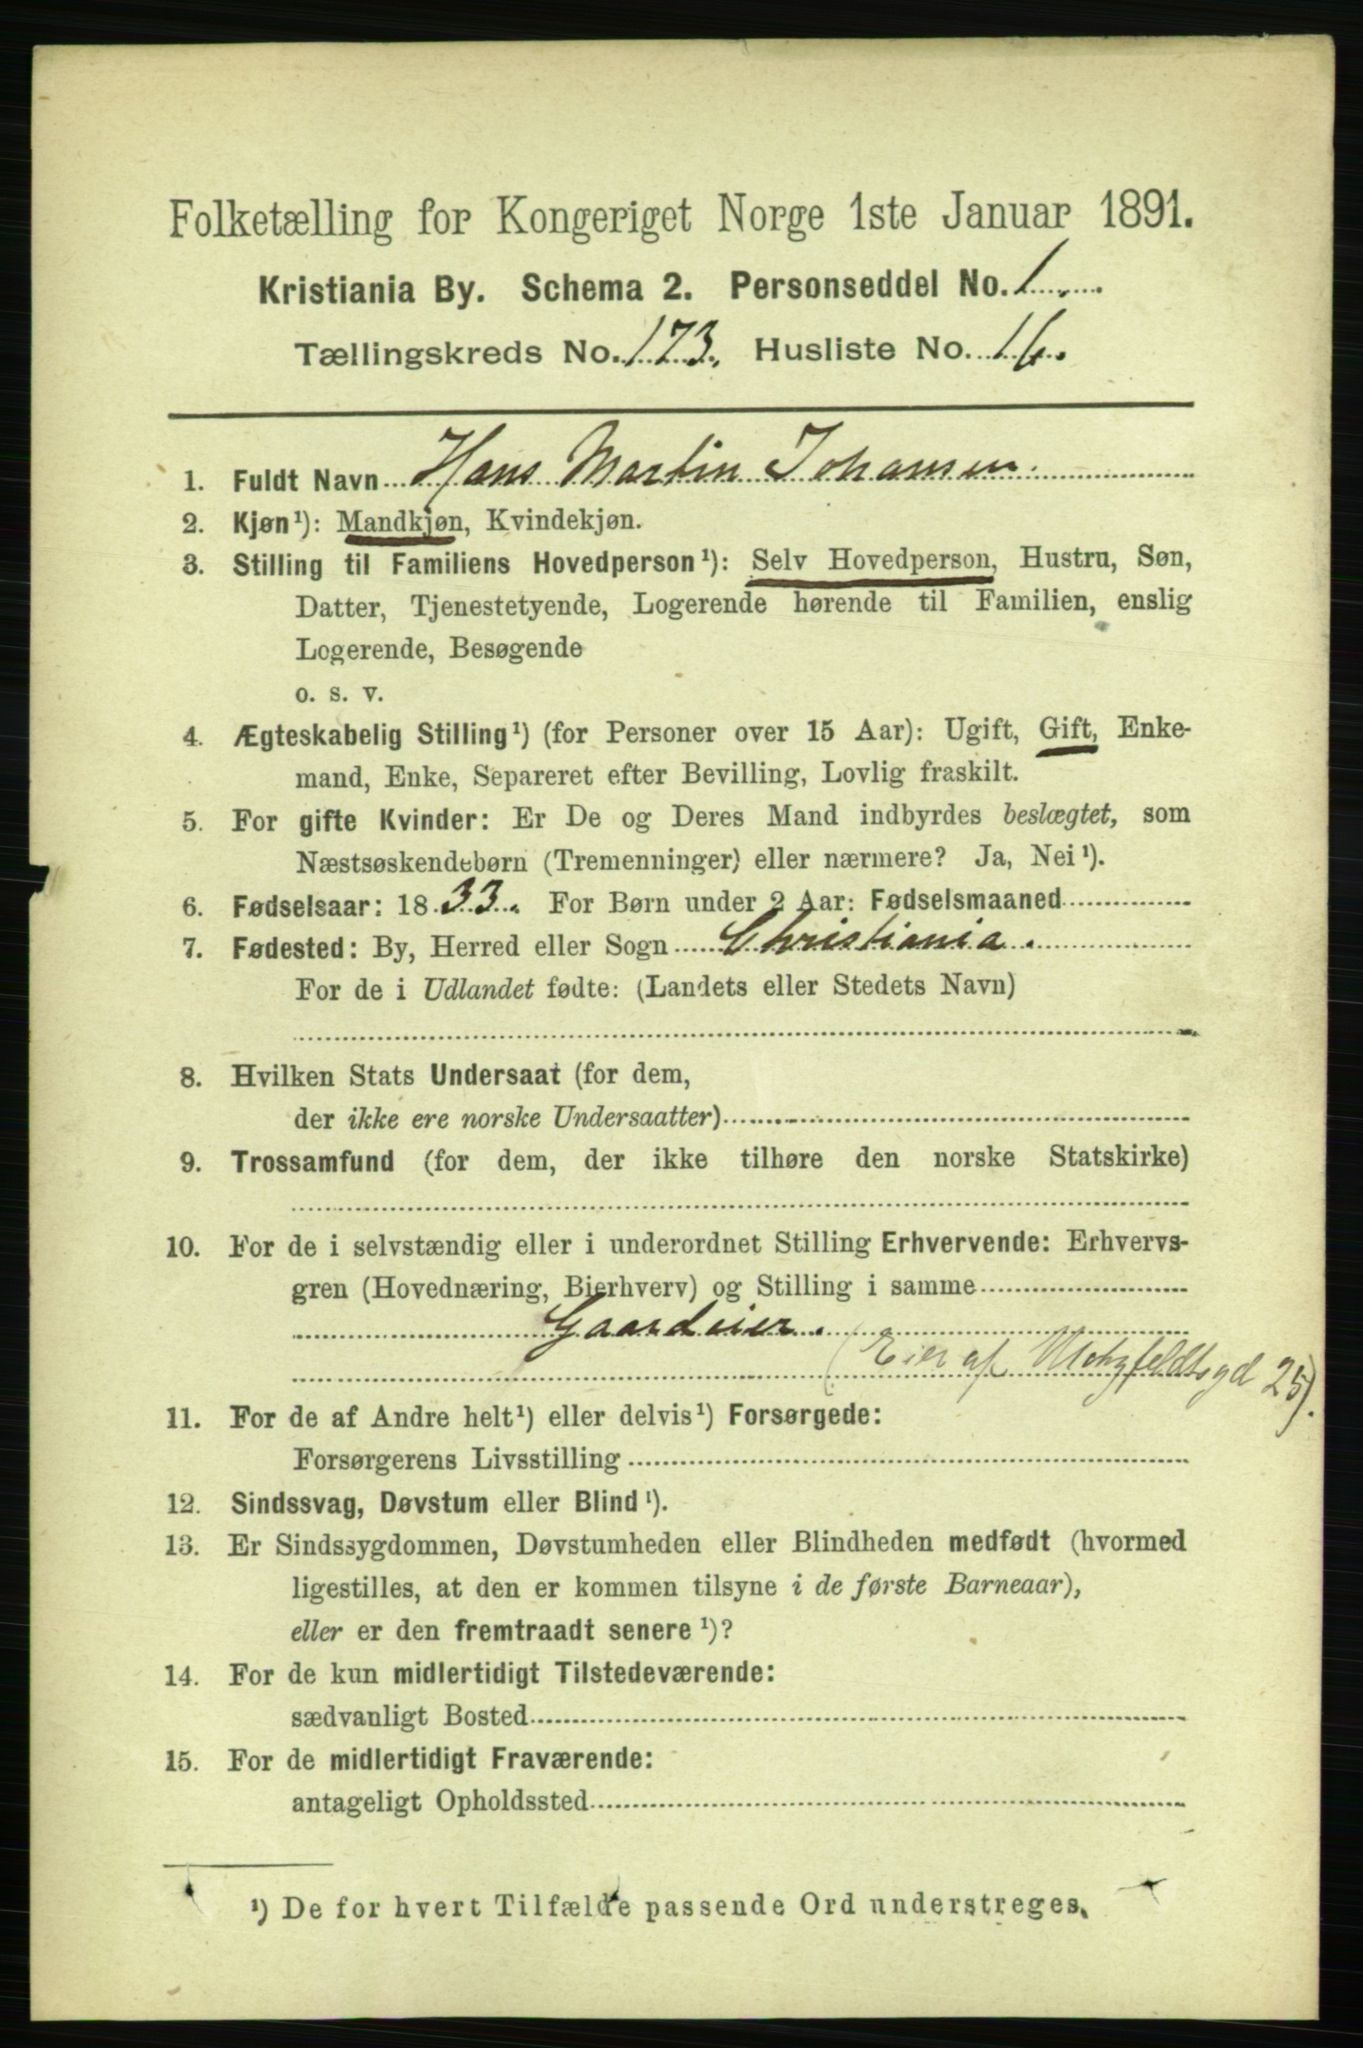 Folketælling for Kongeriget Norge 1ste Januar 1891.
Kristiania By. Schema 2. Personseddel No. 1.
Tællingskreds No. 173. Husliste No. 16.
1. Fuldt Navn Hans Martin Johansen.
2. Kjøn¹): Mandkjøn, Kvindekjøn.
3. Stilling til Familiens Hovedperson¹): Selv Hovedperson, Hustru, Søn,
Datter, Tjenestetyende, Logerende hørende til Familien, enslig
Logerende, Besøgende
o. s. v.
4. Ægteskabelig Stilling¹) (for Personer over 15 Aar): Ugift, Gift, Enke-
mand, Enke, Separeret efter Bevilling, Lovlig fraskilt.
5. For gifte Kvinder: Er De og Deres Mand indbyrdes beslægtet, som
Næstsøskendebørn (Tremenninger) eller nærmere? Ja, Nei¹).
6. Fødselsaar: 1833. For Børn under 2 Aar: Fødselsmaaned
7. Fødested: By, Herred eller Sogn Christiania.
For de i Udlandet fødte: (Landets eller Stedets Navn)
8. Hvilken Stats Undersaat (for dem,
der ikke ere norske Undersaatter)
9. Trossamfund (for dem, der ikke tilhøre den norske Statskirke)
10. For de i selvstændig eller i underordnet Stilling Erhvervende: Erhvervs-
gren (Hovednæring, Bierhverv) og Stilling i samme
Gaardeier.
(Eier af Motzfeldtsgd 25).
11. For de af Andre helt¹) eller delvis¹) Forsørgede:
Forsørgerens Livsstilling
12. Sindssvag, Døvstum eller Blind¹).
13. Er Sindssygdommen, Døvstumheden eller Blindheden medfødt (hvormed
ligestilles, at den er kommen tilsyne i de første Barneaar),
eller er den fremtraadt senere¹)?
14. For de kun midlertidigt Tilstedeværende:
sædvanligt Bosted
15. For de midlertidigt Fraværende:
antageligt Opholdssted
¹) De for hvert Tilfælde passende Ord understreges.